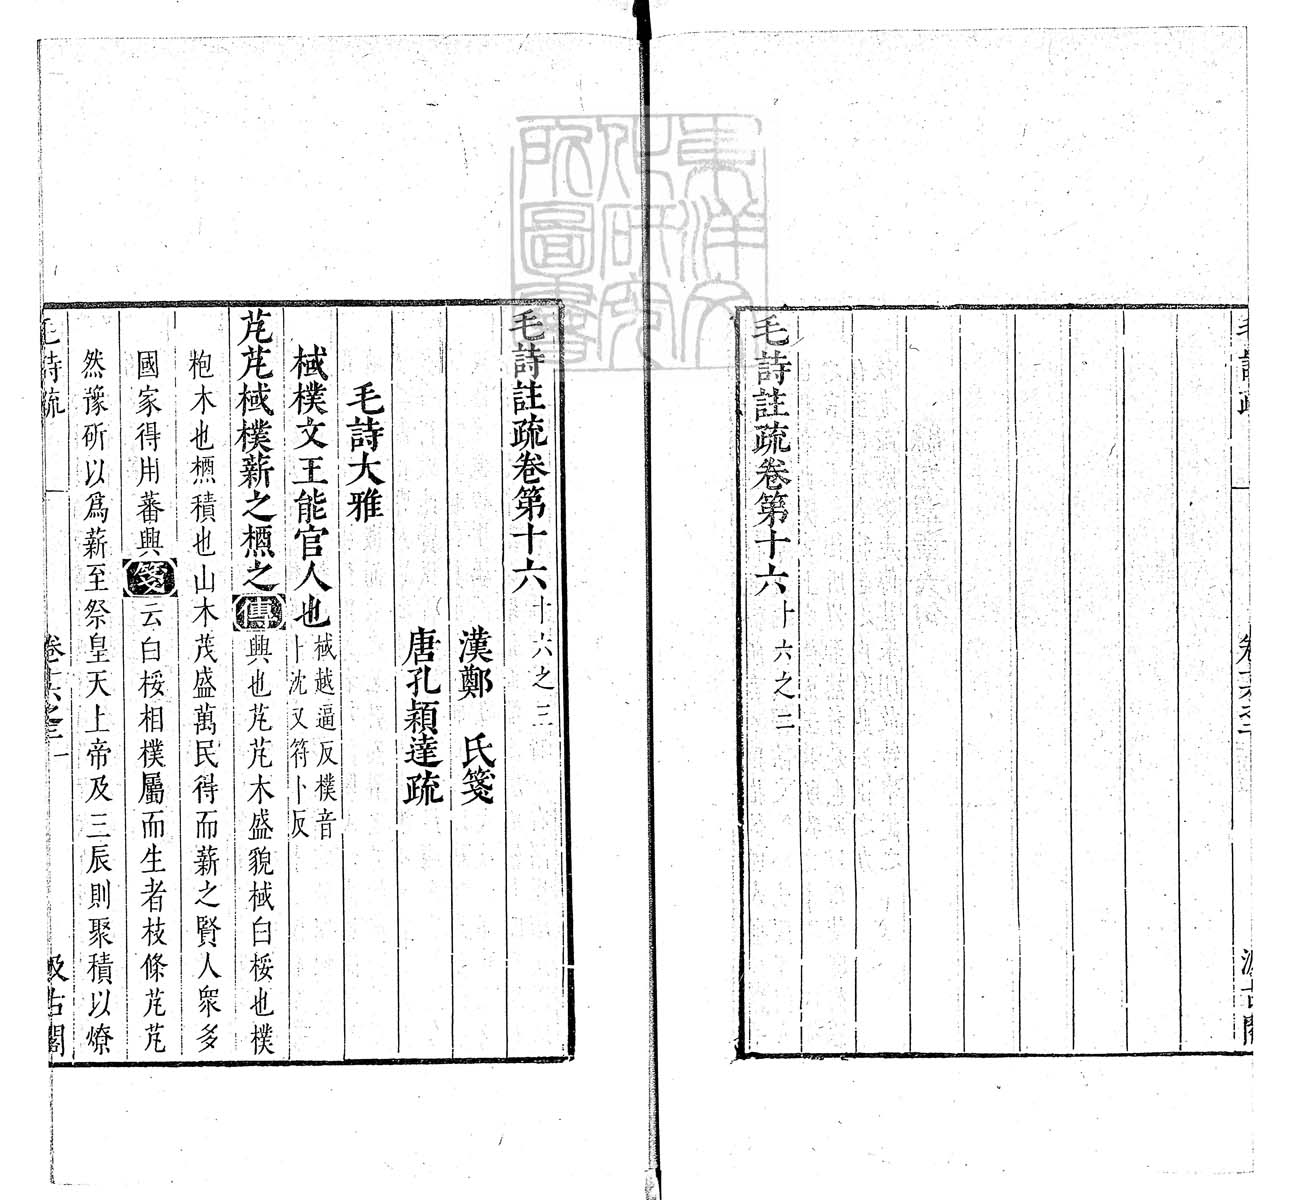 毛詩疏
毛詩註疏卷第十六 十六之二
毛詩註疏卷第十六 十六之三
漢鄭 氏箋
唐孔穎達疏
毛詩大雅
棫樸文王能官人也 棫越逼反樸音
卜沈又符卜反
芃芃棫樸薪之槱之傳興也芃芃木盛貌棫白桵也樸
枹木也槱積也山木茂盛萬民得而薪之賢人衆多
國家得用蕃興箋云白桵相樸屬而生者枝條芃芃
然豫斫以爲薪至祭皇天上帝及三辰則聚積以燎
毛詩疏 卷十六之三 一 汲古閣
東洋文
化研究
所圖書